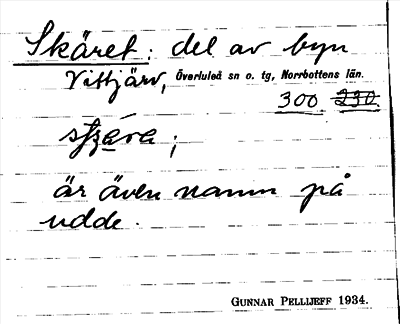 Skäret: del av byn
Vittjärv, Överluleå sn o. tg, Norrbottens län.
300 230
är även namn på
udde.
GUNNAR PELLIJEFF 1934.